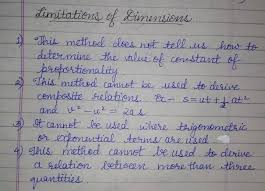 Limitations of Dimensions
1) This method does not tell us how to
determine the value of constant of
proportionality
2) This method cannot be used to derive
composite relations. Ex- s=ut+½at²
and v²-u²=2as
3) It cannot be used where trigonometric
or exponential terms are used
4) This method cannot be used to derive
a relation between more than three
quantities